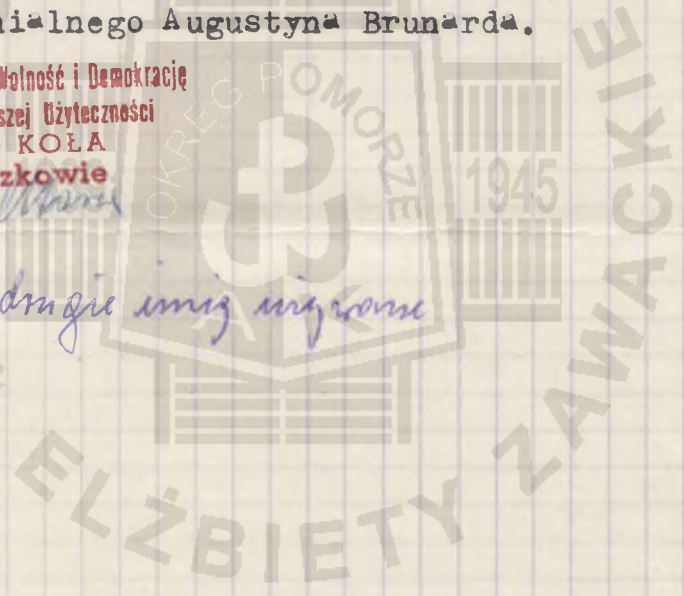 nialnego Augustyna Brunarda.
Wolność i Demokrację
szej Użyteczności
KOŁA
zkowie
drugie imię używane
OKRĘG POMORZE
1945
AK
ELŻBIETY ZAWACKIE